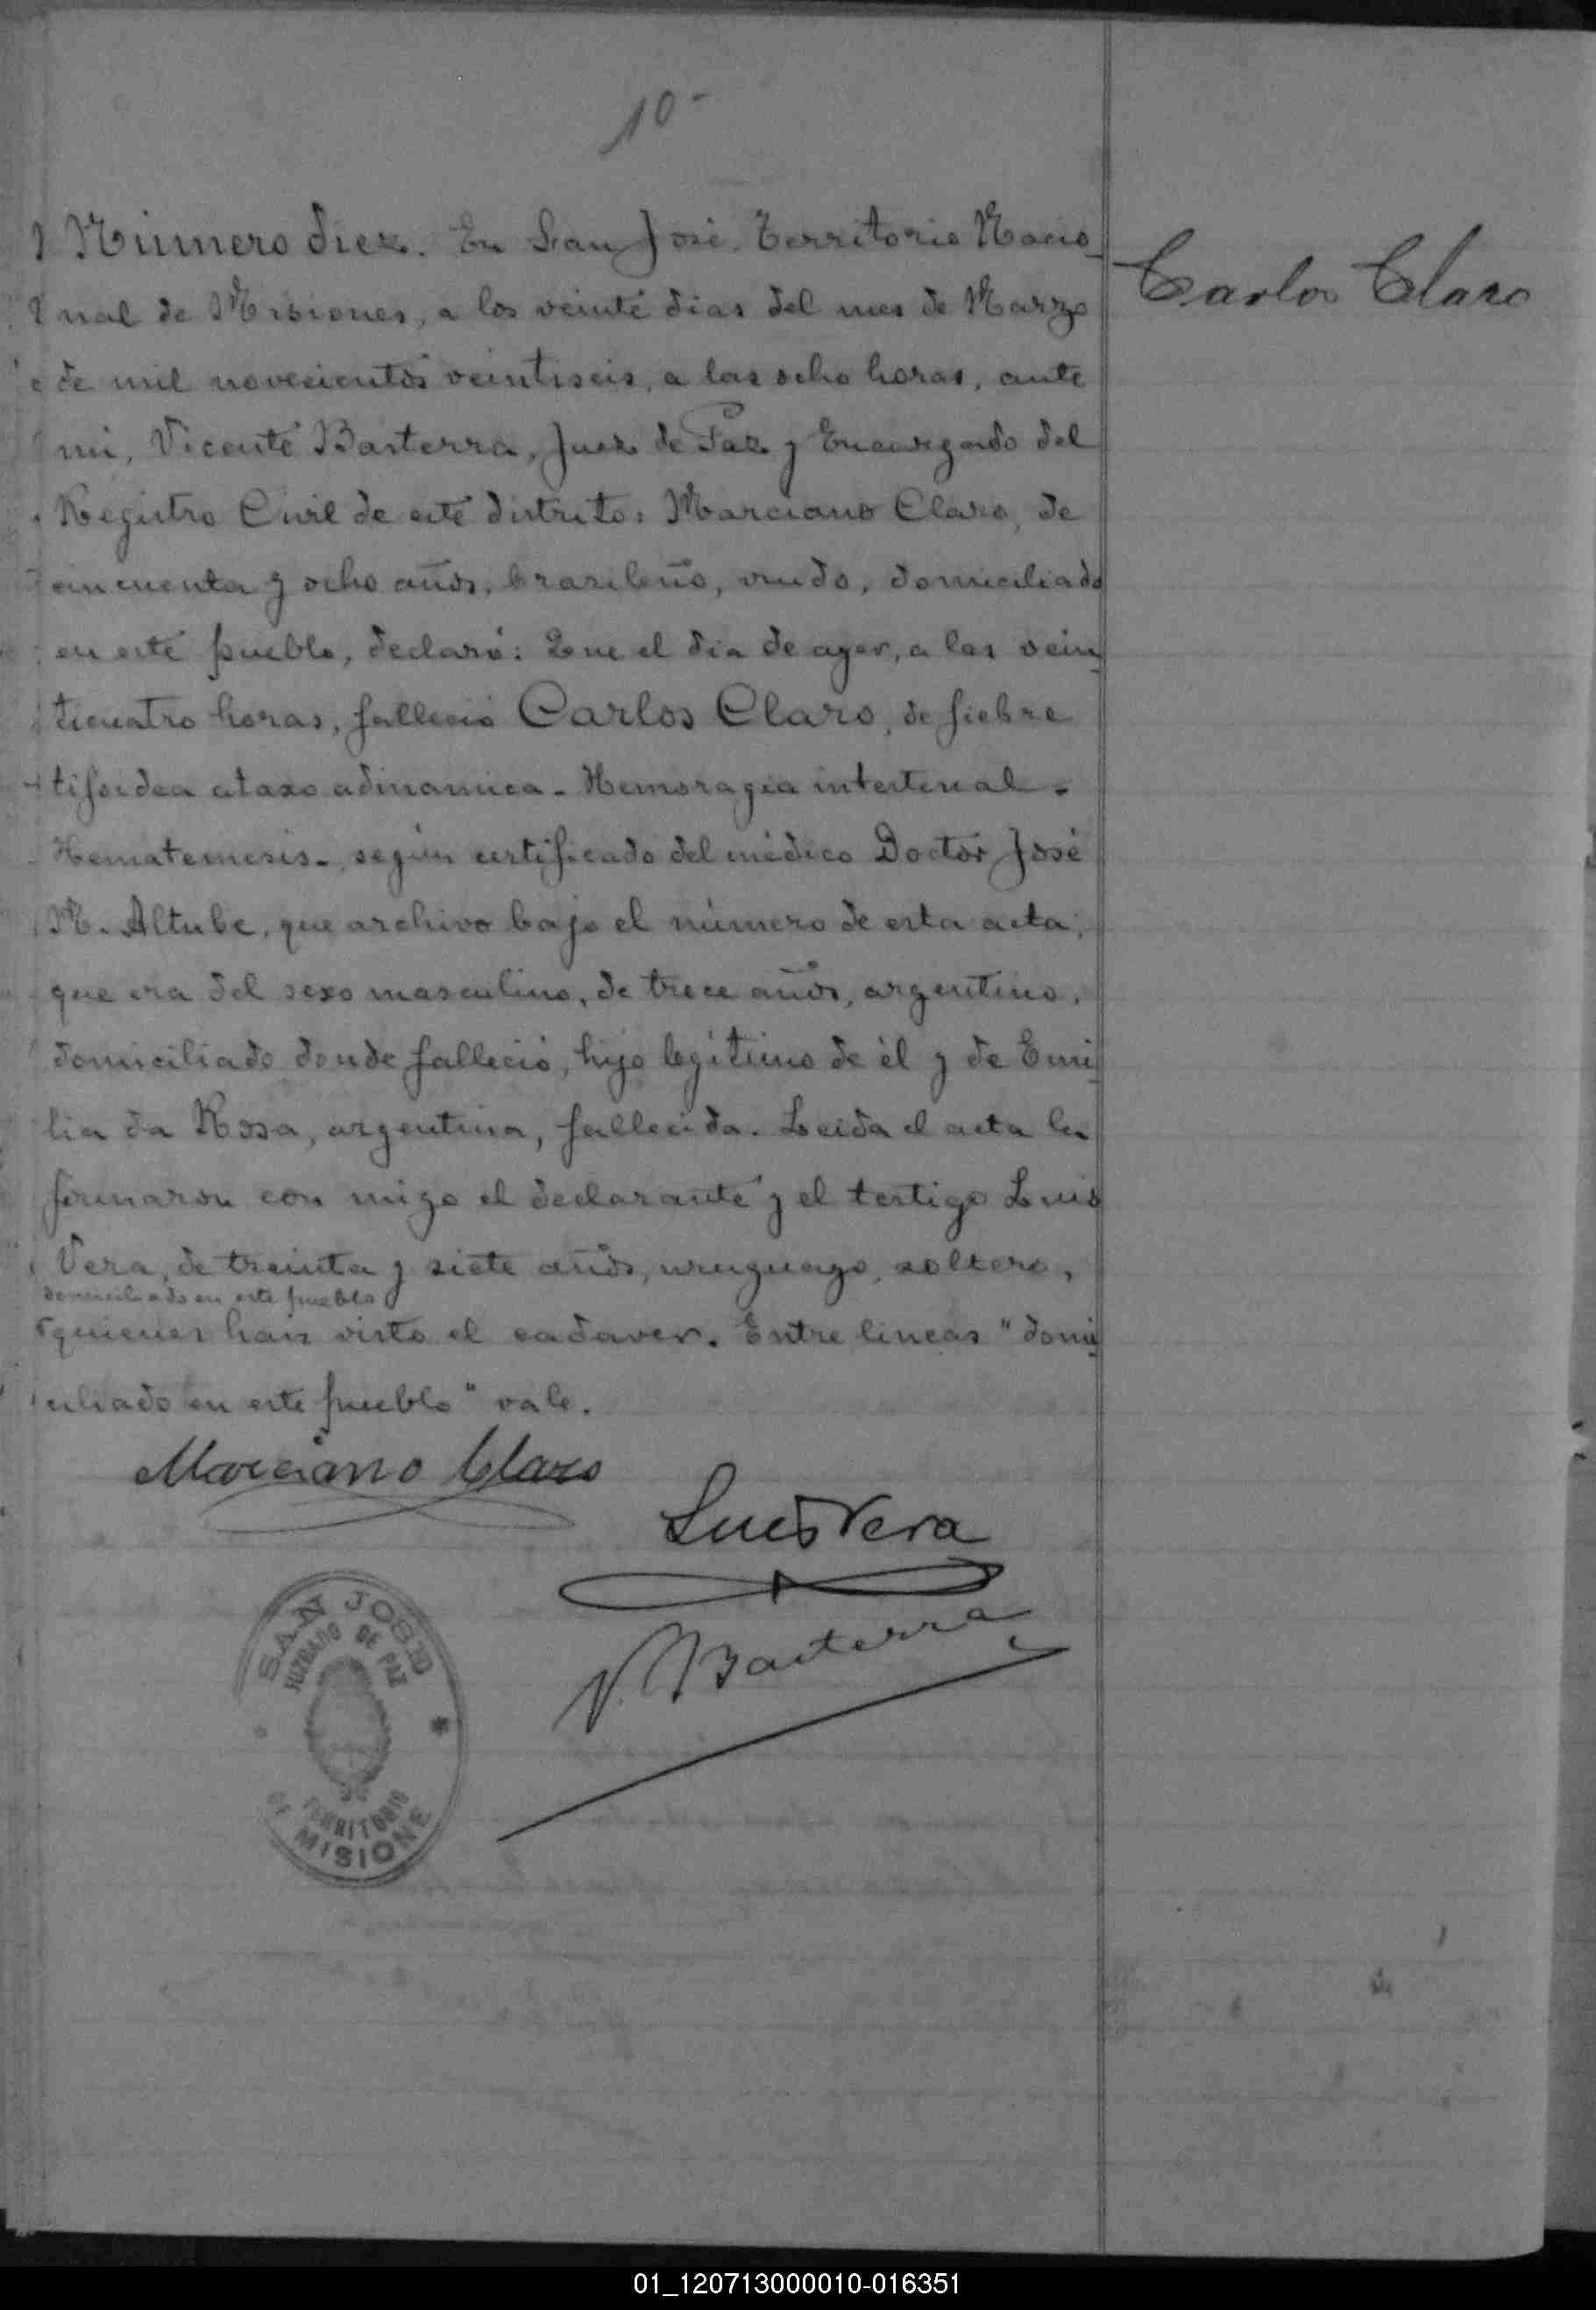 10-
Número diez. En San José, Territorio Nacio-
nal de Misiones, a los veinte dias del mes de Marzo
de mil novecientos veintiseis, a las ocho horas, ante
mi, Vicente Basterra, Juez de Paz y Encargado del
Registro Civil de este distrito: Marciano Claro, de
cincuenta y ocho años, brasileño, viudo, domiciliado
en este pueblo, declaró: Que el dia de ayer, a las vein-
ticuatro horas, falleció Carlos Claro, de fiebre
tifoidea ataxo adinamica - Hemoragia intestinal -
Hematemesis -, según certificado del médico Doctor José
M. Altube, que archivo bajo el número de esta acta,
que era del sexo masculino, de trece años, argentino,
domiciliado donde falleció, hijo legítimo de él y de Emi-
lia da Rosa, argentina, fallecida. Leida el acta la
firmaron con migo el declarante y el testigo Luis
Vera, de treinta y siete años, uruguayo, soltero,
domiciliado en este pueblo
quienes han visto el cadaver. Entre lineas "domi-
ciliado en este pueblo" vale.
Carlos Claro
Marciano Claro
Luis Vera
V. Basterra
SAN JOSE
JUZGADO DE PAZ
TERRITORIO
DE MISIONE
01_120713000010-016351